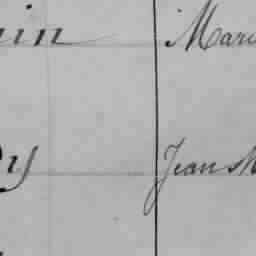 in Mari
y Jean M